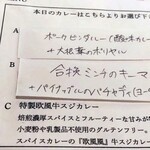 本日のカレーはこちらよりお選び下
ポークビンダルー(酸味カレー
+大根葉のポリヤル
合挽ミンチのキーマ
+パイナップルのパチャディ(ヨー
C 特製欧風牛スジカレー
焙煎濃厚スパイスとフルーティーな甘みが
小麦粉や乳製品不使用のグルテンフリー。
スパイスカレーの『欧風風』牛スジカレー